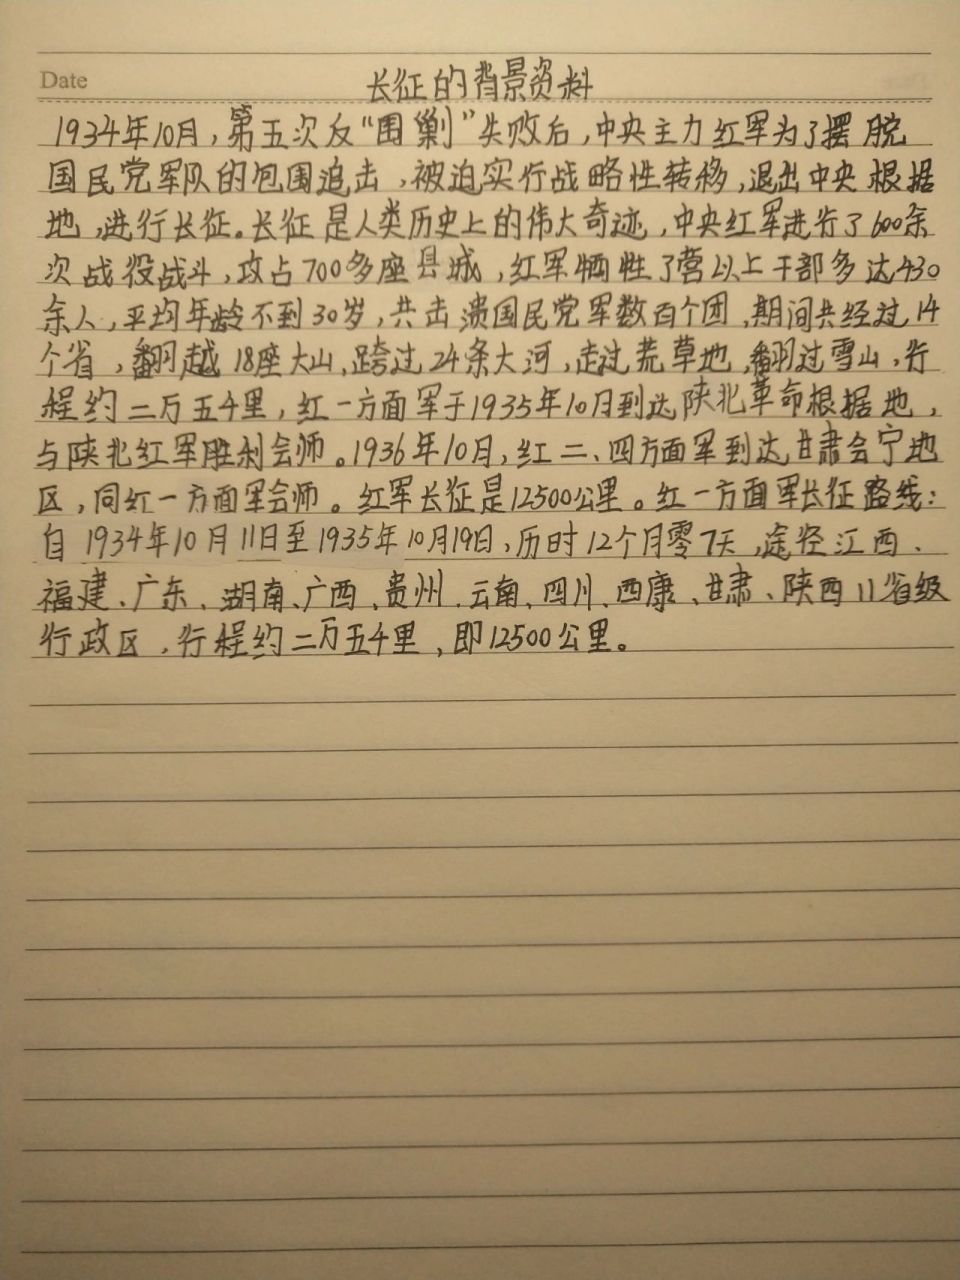 Date
长征的背景资料
1934年10月，第五次反“围剿”失败后，中央主力红军为了摆脱
国民党军队的包围追击，被迫实行战略性转移，退出中央根据
地，进行长征。长征是人类历史上的伟大奇迹，中央红军进行了600余
次战役战斗，攻占700多座县城，红军牺牲了营以上干部多达430
余人，平均年龄不到30岁，共击溃国民党军数百个团，期间共经过14
个省，翻越18座大山，跨过24条大河，走过荒草地，翻过雪山，行
程约二万五千里，红一方面军于1935年10月到达陕北革命根据地，
与陕北红军胜利会师。1936年10月，红二、四方面军到达甘肃会宁地
区，同红一方面军会师。红军长征是12500公里。红一方面军长征路线：
自1934年10月11日至1935年10月19日，历时12个月零7天，途径江西、
福建、广东、湖南、广西、贵州、云南、四川、西康、甘肃、陕西11省级
行政区，行程约二万五千里，即12500公里。